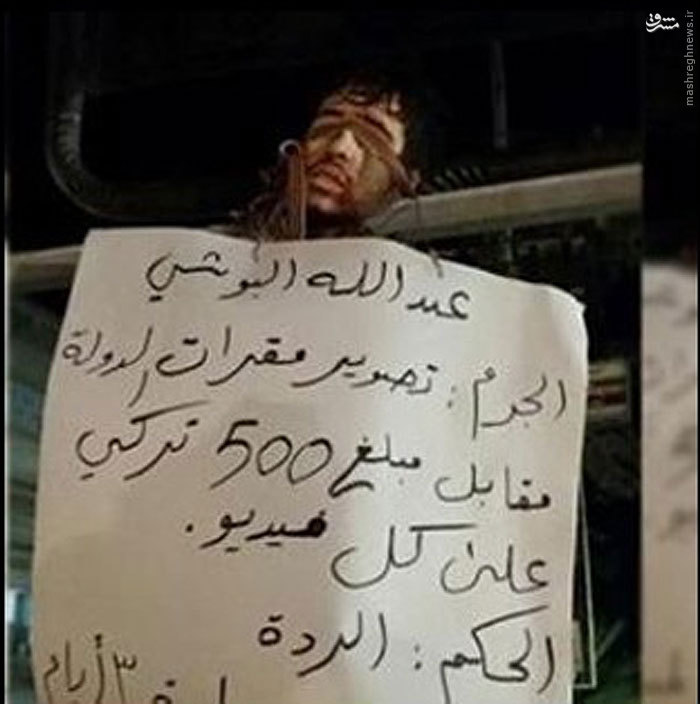 مشرق
mashreghnews.ir
عبدالله البوشي
الجرم : تصوير مقرات الدولة
مقابل مبلغ 500 تركي
على كل فيديو .
الحكم : الردة
٣ أيام